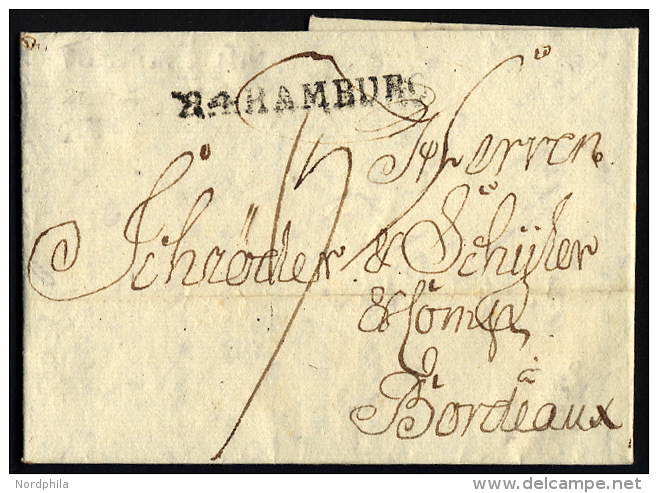 R.4.HAMBURG
Herren
Schröder & Schÿler
& Comp
à
Bordeaux
Nordphila
www.delcampe.net